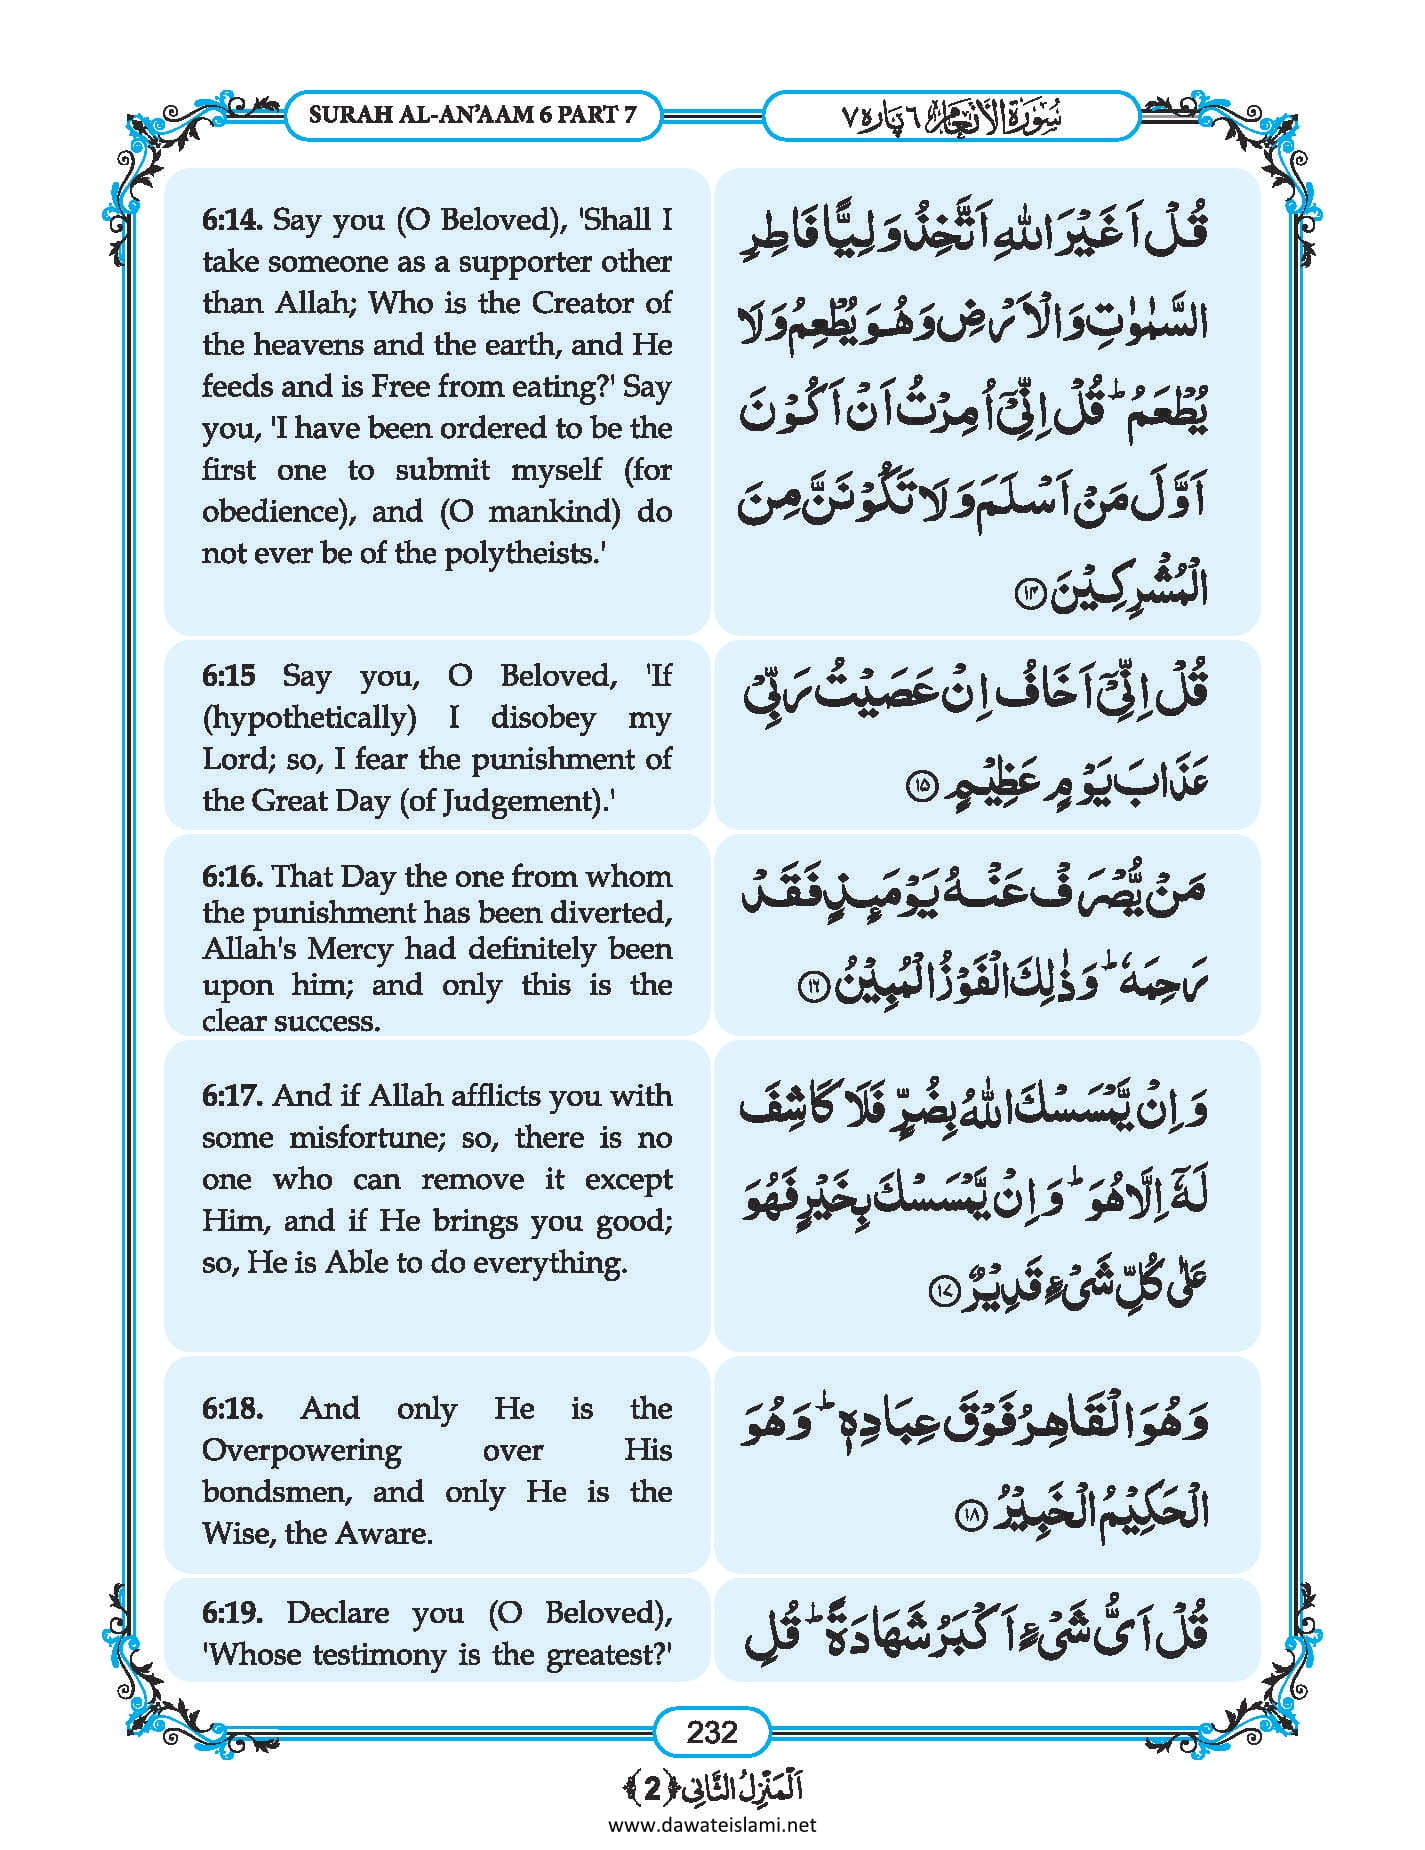 SURAH AL-AN’AAM 6 PART 7
سُوْرَةُ الْاَنْعَام ٦ پاره ٧
6:14. Say you (O Beloved), 'Shall I
take someone as a supporter other
than Allah; Who is the Creator of
the heavens and the earth, and He
feeds and is Free from eating?' Say
you, 'I have been ordered to be the
first one to submit myself (for
obedience), and (O mankind) do
not ever be of the polytheists.'
قُلْ اَغَيْرَ اللّٰهِ اَتَّخِذُ وَلِيًّا فَاطِرِ
السَّمٰوٰتِ وَالْاَرْضِ وَهُوَ يُطْعِمُ وَلَا
يُطْعَمُ ؕ قُلْ اِنِّیْۤ اُمِرْتُ اَنْ اَكُوْنَ
اَوَّلَ مَنْ اَسْلَمَ وَلَا تَكُوْنَنَّ مِنَ
الْمُشْرِكِيْنَ ۝۱۴
6:15 Say you, O Beloved, 'If
(hypothetically) I disobey my
Lord; so, I fear the punishment of
the Great Day (of Judgement).'
قُلْ اِنِّیْۤ اَخَافُ اِنْ عَصَيْتُ رَبِّیْ
عَذَابَ يَوْمٍ عَظِيْمٍ ۝۱۵
6:16. That Day the one from whom
the punishment has been diverted,
Allah's Mercy had definitely been
upon him; and only this is the
clear success.
مَنْ يُّصْرَفْ عَنْهُ يَوْمَئِذٍ فَقَدْ
رَحِمَهٗ ؕ وَذٰلِكَ الْفَوْزُ الْمُبِيْنُ ۝۱۶
6:17. And if Allah afflicts you with
some misfortune; so, there is no
one who can remove it except
Him, and if He brings you good;
so, He is Able to do everything.
وَاِنْ يَّمْسَسْكَ اللّٰهُ بِضُرٍّ فَلَا كَاشِفَ
لَهٗۤ اِلَّا هُوَ ؕ وَاِنْ يَّمْسَسْكَ بِخَيْرٍ فَهُوَ
عَلٰی كُلِّ شَیْءٍ قَدِيْرٌ ۝۱۷
6:18. And only He is the
Overpowering over His
bondsmen, and only He is the
Wise, the Aware.
وَهُوَ الْقَاهِرُ فَوْقَ عِبَادِهٖ ؕ وَهُوَ
الْحَكِيْمُ الْخَبِيْرُ ۝۱۸
6:19. Declare you (O Beloved),
'Whose testimony is the greatest?'
قُلْ اَیُّ شَیْءٍ اَكْبَرُ شَهَادَةً ؕ قُلِ
232
اَلْمَنْزِلُ الثَّانِی ﴿2﴾
www.dawateislami.net